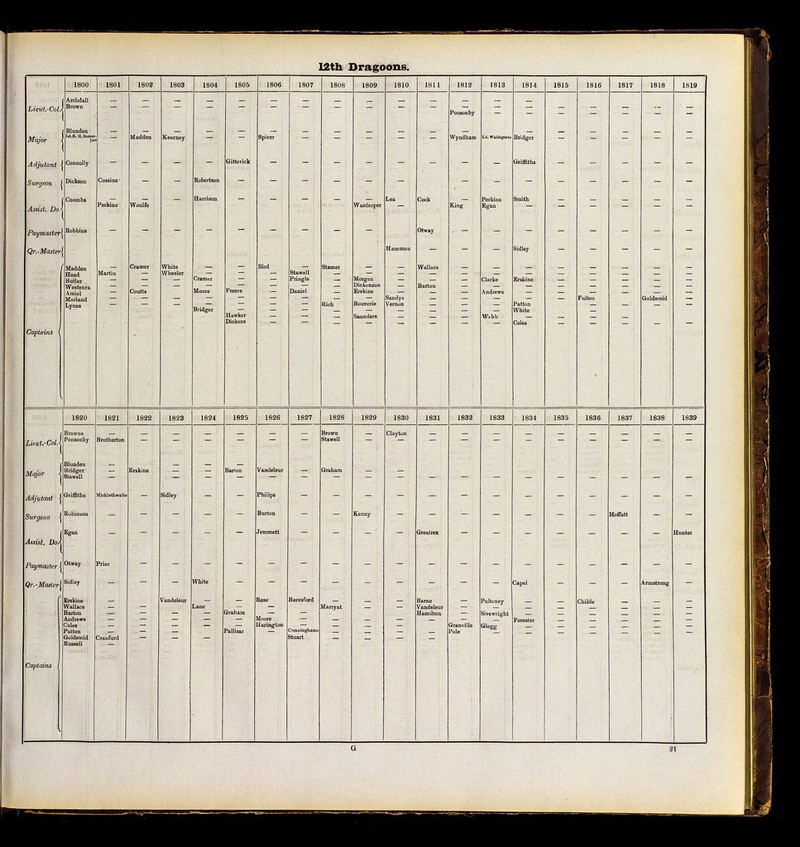 12th Dragoons.
1800 1801 1802 1803 1804 1805 1806 1807 1808 1809 1810 1811 1812 1813 1814 1815 1816 1817 1818 1819
Lieut.-Col. Archdall — — — — — — — — — — — — — — — — — — —
Brown — — — — — — — — — — — Ponsonby — — — — — — —
Major Blunden — — — — — — — — — — — — — — — — — — —
— Madden Kearney — — Spicer — — — — — Wyndham Bridger — — — — —
Adjutant Connolly — — — — Gitterick — — — — — — — — Griffiths — — — — —
Surgeon Dickson Cossins — — Robertson — — — — — — — — — — — — — — —
Assist. Do. Coombs — — — Harrison — — — — — Lea Cock — Perkins Smith — — — — —
Perkins Woulfe Wardroper King Egan — — — — — —
Paymaster Robbins — — — — — — — — — — Otway — — — — — — — —
Qr.-Master Hammon — — — Sidley — — — — —
Captains
Madden — Cramer White — — Bird — Stamer — — Wallace — — — — — — — —
Head Martin — Wheeler — — — Stawell — — — — — — — — — — — —
Butler Cramer — — Pringle — Morgan — — — Clarke Erskine — — — — —
Westenra — — — — — — — — Dickenson — Barton — — — — — — — —
Amiel — Coutts — Moore Freere — Daniel — Erskine — — — Andrews — — — — — —
Morland — — — — — — — — — Sandys — — — — — Fulton — Goldsmid —
Lyons — — — — — — — Rich Bouverie Vernon — — — Patton — — — — —
Bridger — — — — — — — — — White — — —
Hawker — — — Saunders — — — Webb — — — —
Dickens — — — — — — — — Coles — — — — —
1820 1821 1822 1823 1824 1825 1826 1827 1828 1829 1830 1831 1832 1833 1834 1835 1836 1837 1838 1839
Lieut.-Col. Browne — — — — — — — Brown — Clayton — — — — — — — — —
Ponsonby Brotherton — — — — — — Stawell — — — — — — — — — — —
Major Blunden — — — — —
Bridger — Erskine — — Barton Vandeleur — Graham — —
Stawell — — — — — — — — — — — — — — — — — — —
Adjutant Griffiths Micklethwaite — Sidley — — Philips — — — — — — — — — — — — —
Surgeon Robinson — — — — — Burton — — Kenny — — — — — — — Moffatt — —
Assist. Do. Egan — — — — — Jemmett — — — — Greatrex — — — — — — — Hunter
Paymaster Otway Prior — — — — — — — — — — — — — — — — — —
Qr.-Master Sidley — — — White — — — — — — — — — Capel — — — Armstrong —
Captains
Erskine — — Vandeleur — — Rose Beresford — — — Barne — Pulteney — — Childe — — —
Wallace — — — Lane — — — Marryat — — Vandeleur — — — — — — — —
Barton — — — — Graham — — — — — Hamilton — Sivewright — — — — — —
Andrews — — — — — Moore — — — — — — — Forester — — — — —
Coles — — — — — Harington — — — — — Granville Glegg — — — — — —
Patton — — — — Pallisar — Cunningham — — — — Pole — — — — — — —
Goldsmid Craufurd — — — Stuart — — — —
Russell —
G 21